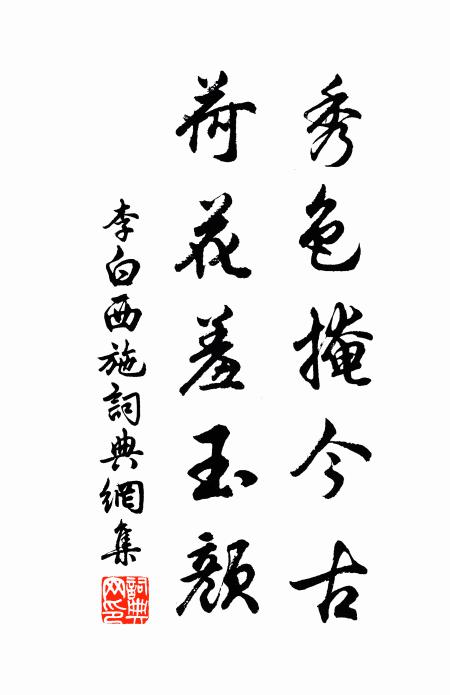 秀色掩今古
荷花羞玉顔
李白西施詞典網集